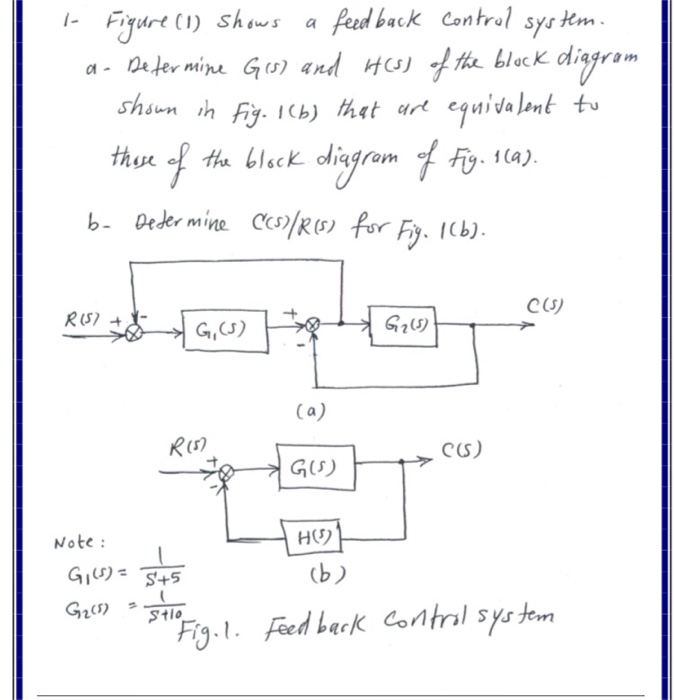 1- Figure (1) shows a feedback control system.
a- Determine G(s) and H(s) of the block diagram
shown in Fig. 1(b) that are equivalent to
those of the block diagram of Fig. 1(a).
b- Determine C(s)/R(s) for Fig. 1(b).
R(s) + - G1(s) + - G2(s) C(s)
(a)
R(s) + - G(s) C(s)
H(s)
(b)
Note:
G1(s) = 1/S+5
G2(s) = 1/S+10
Fig.1. Feedback control system